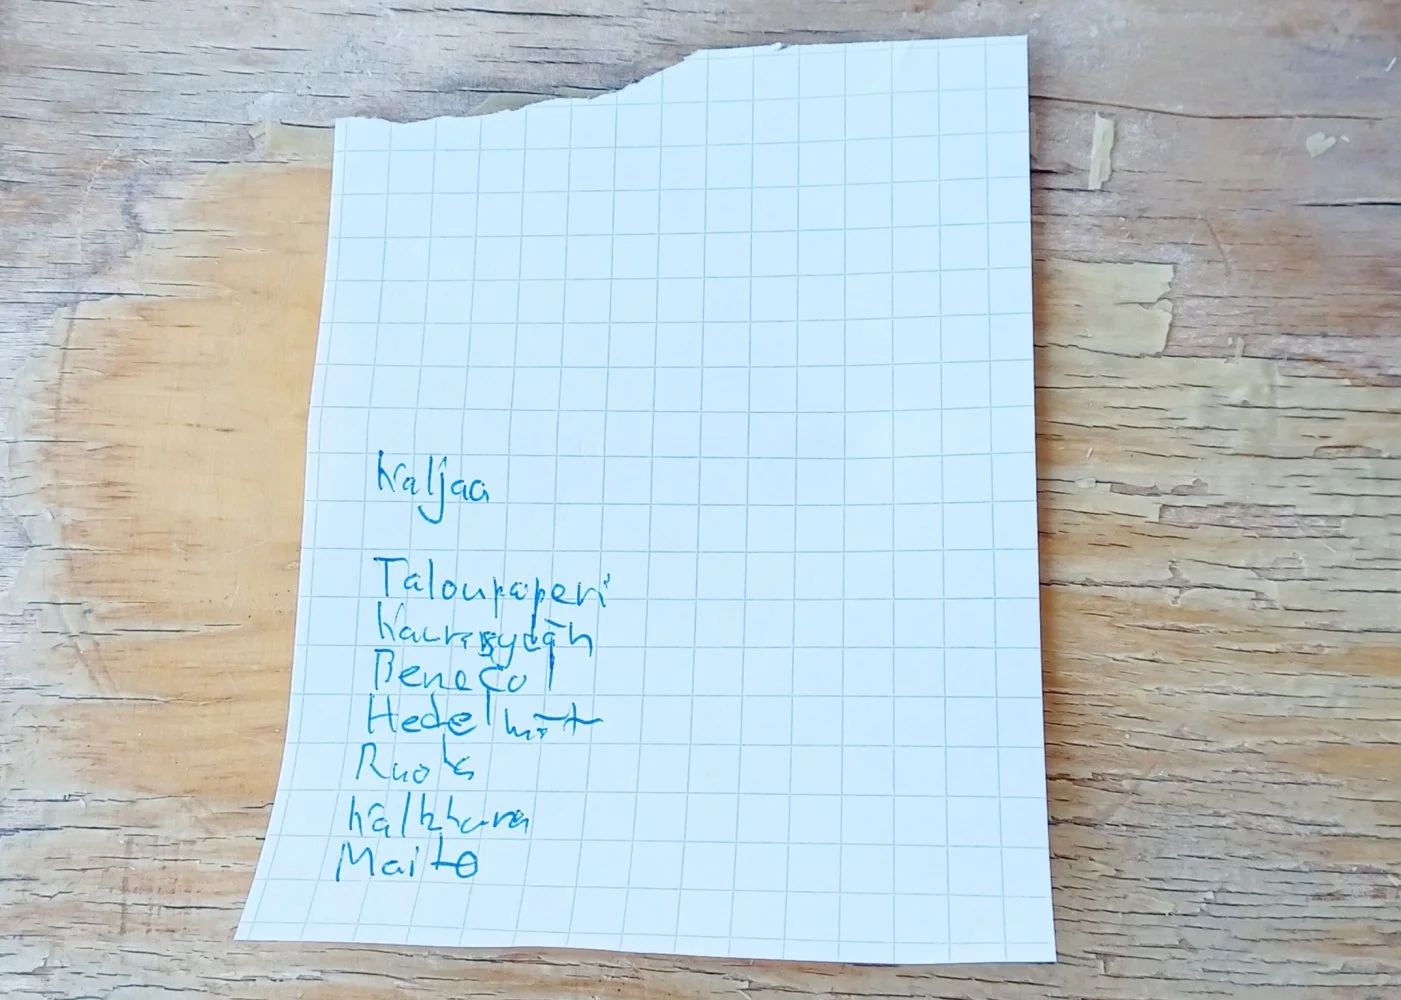 Kaljaa
Taloupaperi
Kaurasydän
Benecol
Hedelmät
Ruoka
Kalkkuna
Maito